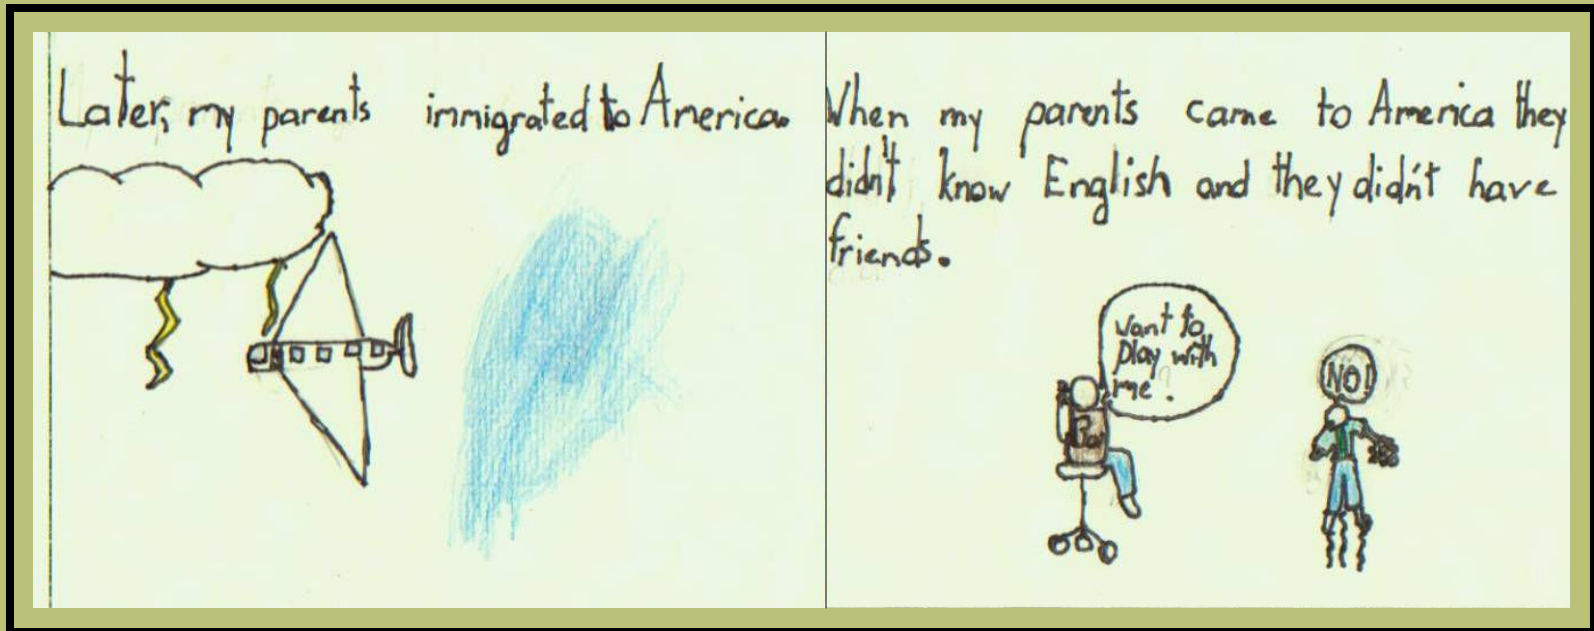 Later, my parents immigrated to America.
When my parents came to America they
didn't know English and they didn't have
friends.
want to
play with
me?
NO!